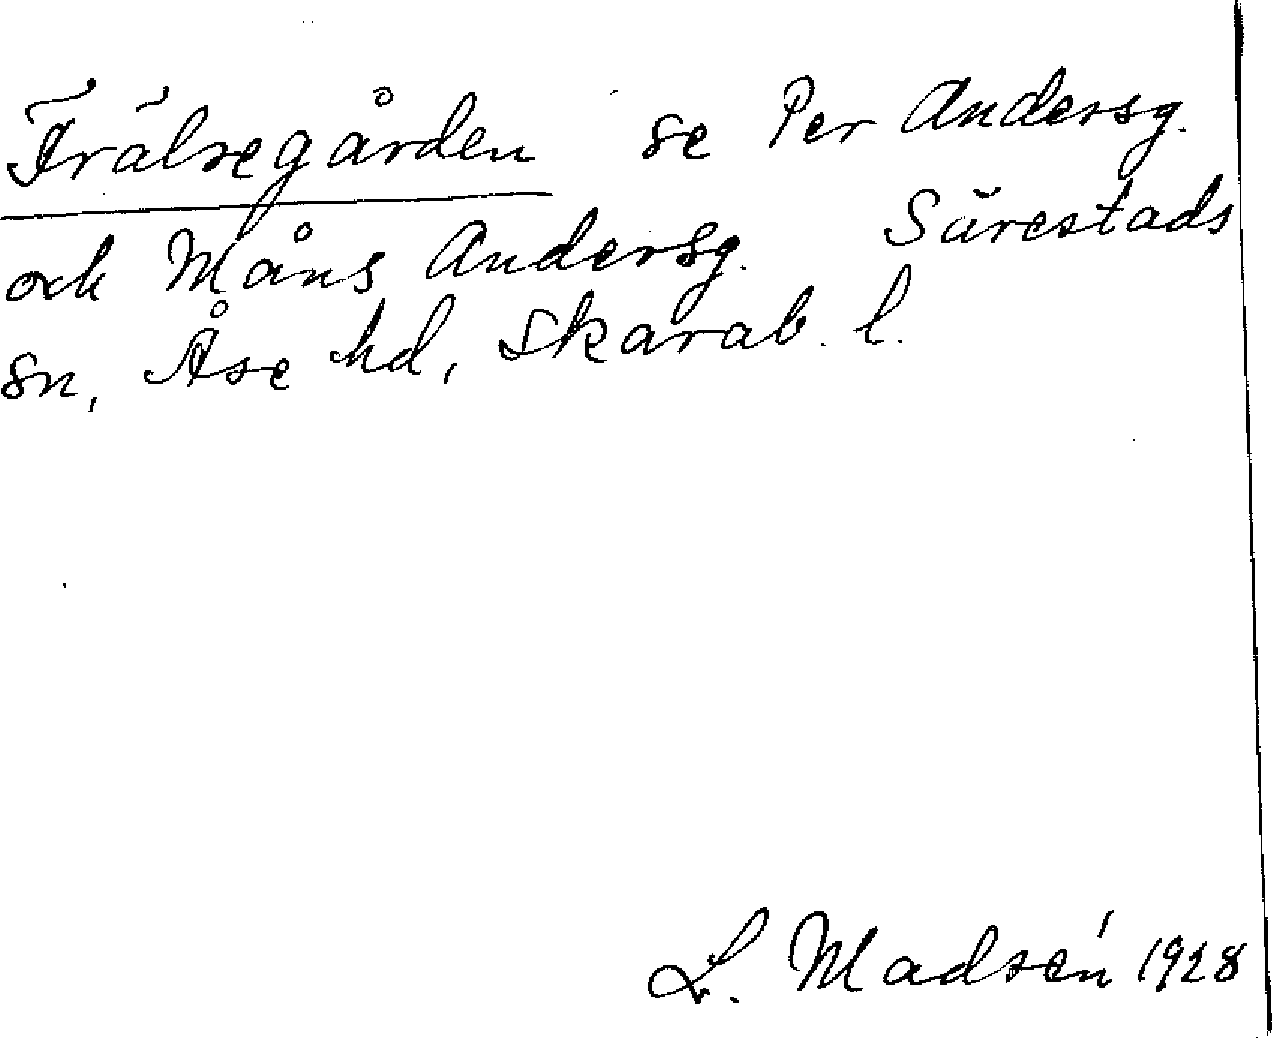 Frälsegården se Per Andersg.
och Måns Andersg. Särestads
sn, Åse hd, Skarab. l.
L. Madsén 1928